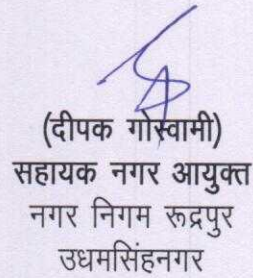 (दीपक गोस्वामी)
सहायक नगर आयुक्त
नगर निगम रूद्रपुर
उधमसिंहनगर